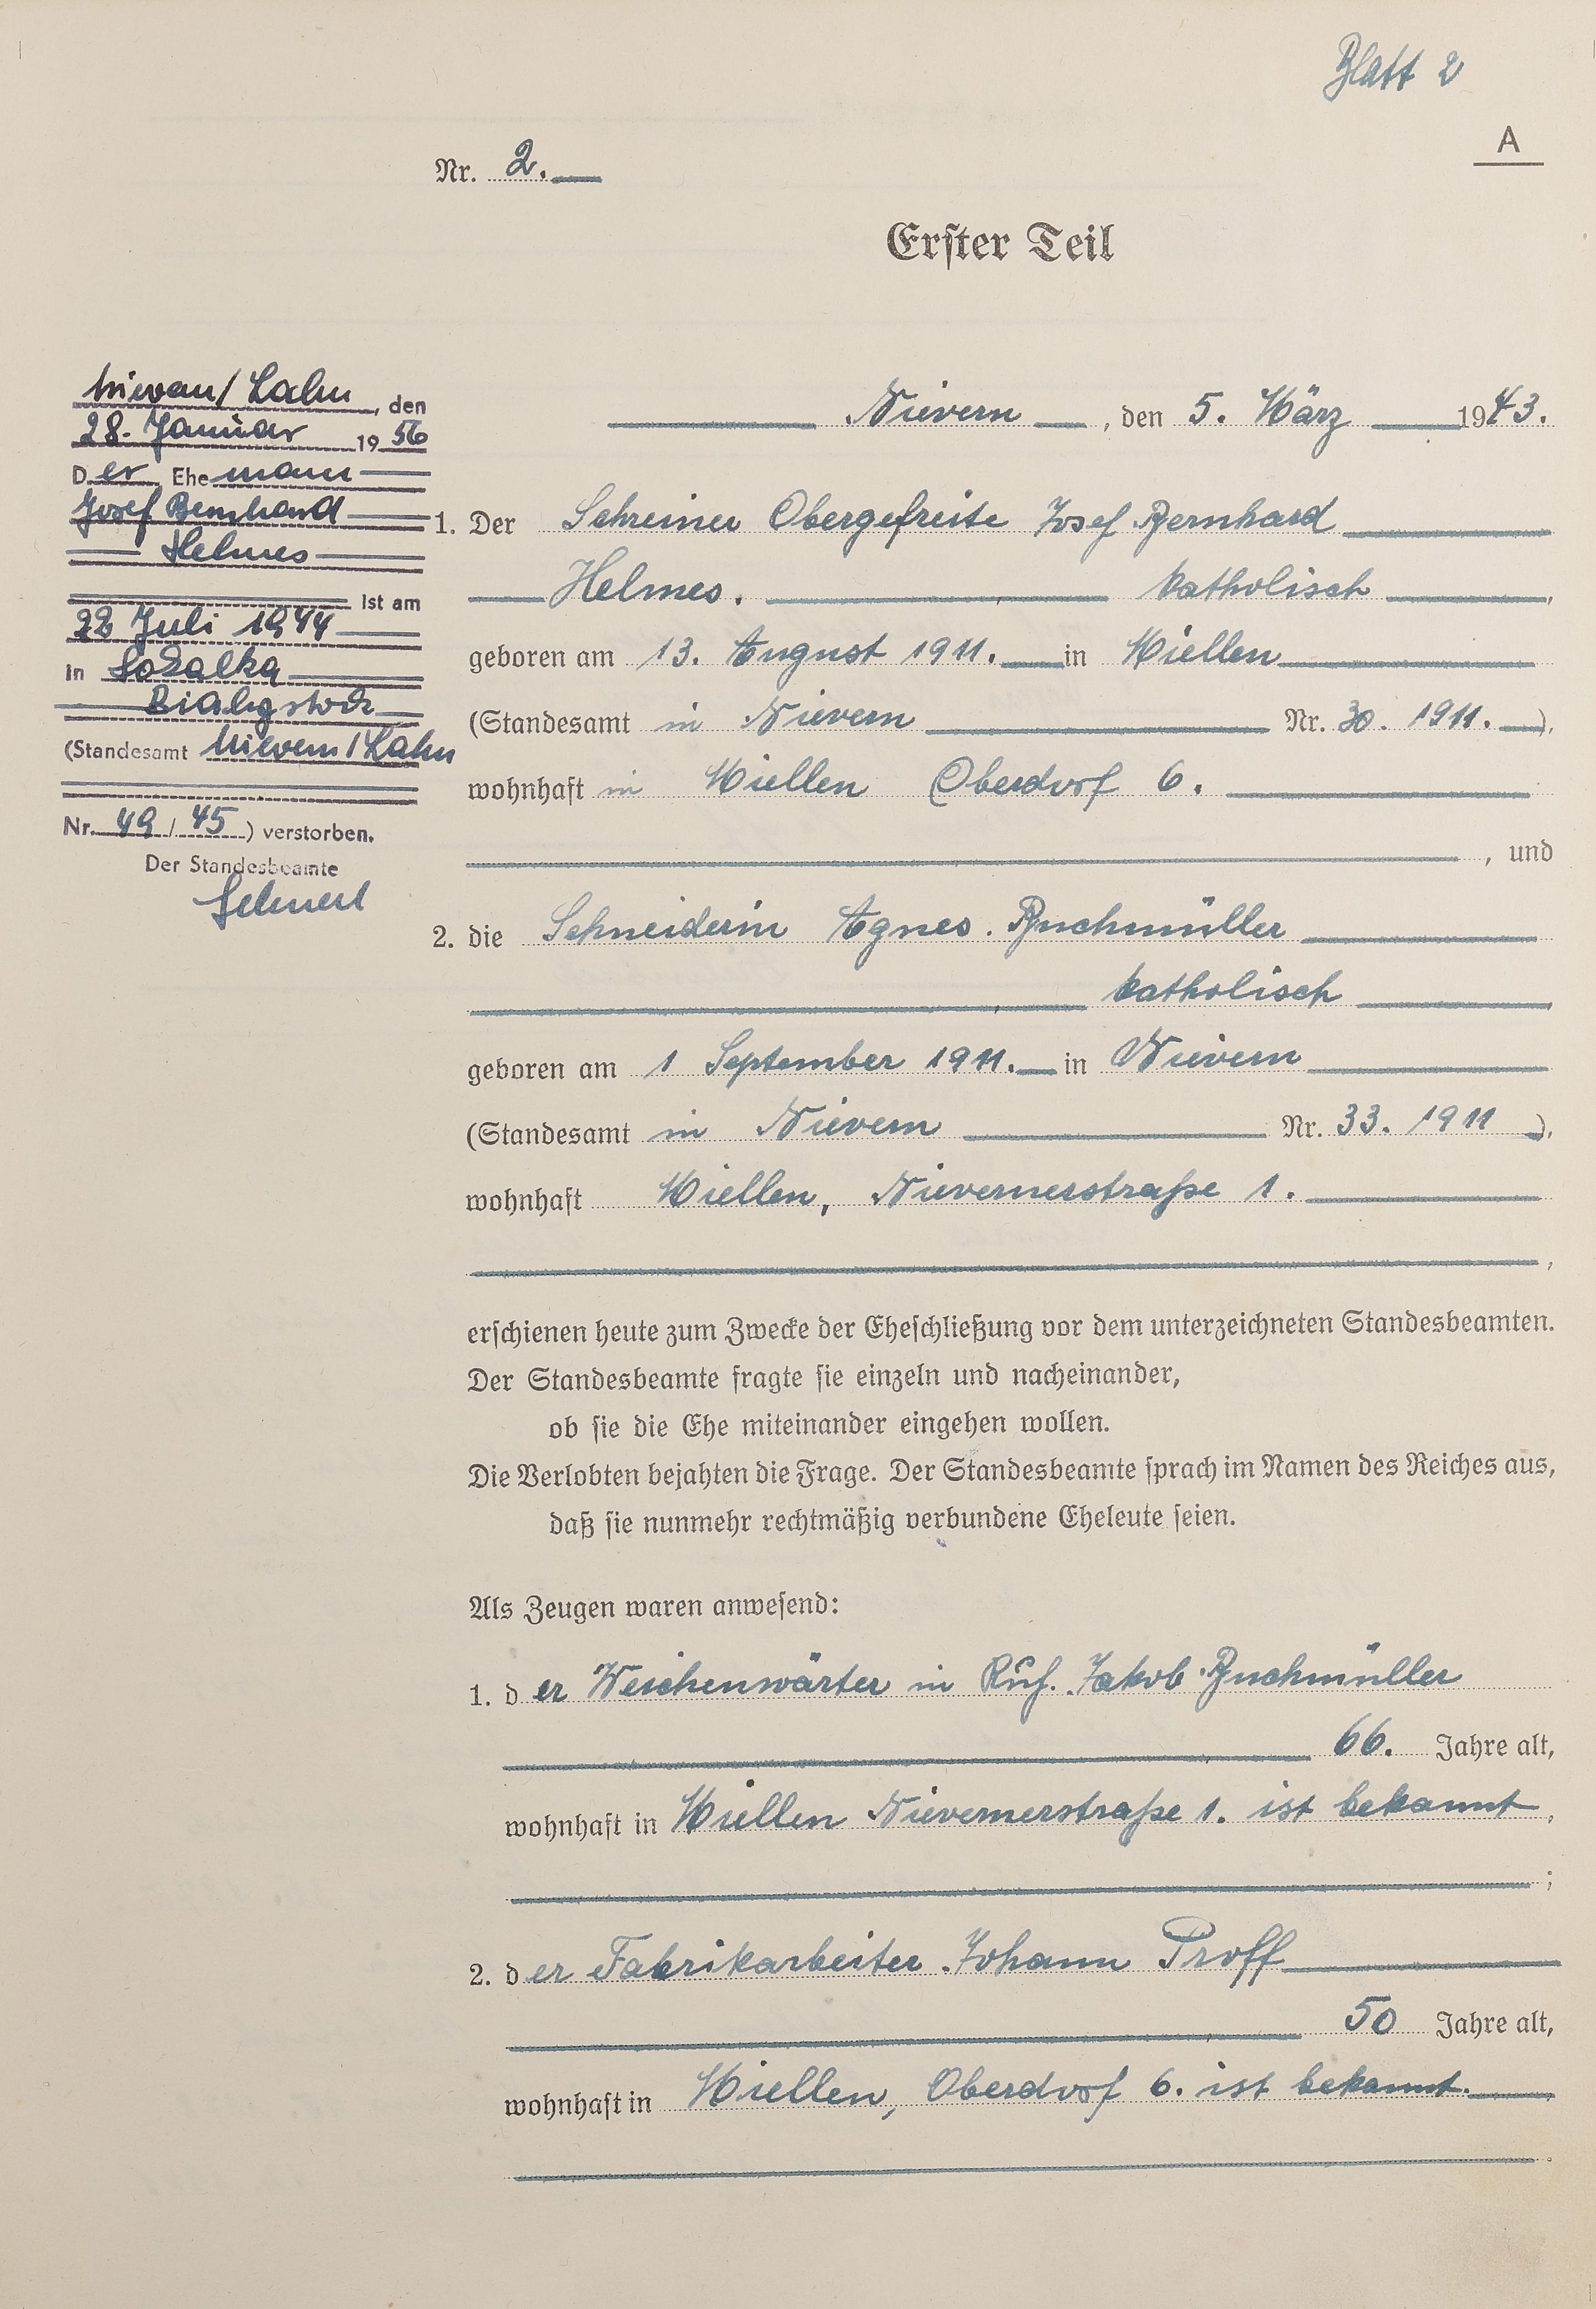 Blatt 2
A
Nr. 2.
Erster Teil
Nievern/Lahn, den
28. Januar 1956
Der Ehemann
Josef Bernhard
Helmes
ist am
22 Juli 1944
in Sokalka
Bialystok
(Standesamt Nievern/Lahn
Nr. 49/45) verstorben.
Der Standesbeamte
Nievern, den 5. März 1943.
1. Der Schreiner Obergefreite Josef Bernhard
Helmes. katholisch,
geboren am 13. August 1911. in Miellen
(Standesamt in Nievern Nr. 30. 1911.),
wohnhaft in Miellen Oberdorf 6.
, und
2. die Schneiderin Agnes. Buchmüller
katholisch,
geboren am 1 September 1911. in Nievern
(Standesamt in Nievern Nr. 33. 1911),
wohnhaft Miellen, Nievernerstraße 1.
,
erschienen heute zum Zwecke der Eheschließung vor dem unterzeichneten Standesbeamten.
Der Standesbeamte fragte sie einzeln und nacheinander,
ob sie die Ehe miteinander eingehen wollen.
Die Verlobten bejahten die Frage. Der Standesbeamte sprach im Namen des Reiches aus,
daß sie nunmehr rechtmäßig verbundene Eheleute seien.
Als Zeugen waren anwesend:
1. der Weichenwärter in Ruf. Jakob Buchmüller
66. Jahre alt,
wohnhaft in Miellen Nievernerstraße 1. ist bekannt,
;
2. der Fabrikarbeiter Johann Proff
50 Jahre alt,
wohnhaft in Miellen, Oberdorf 6. ist bekannt.
.